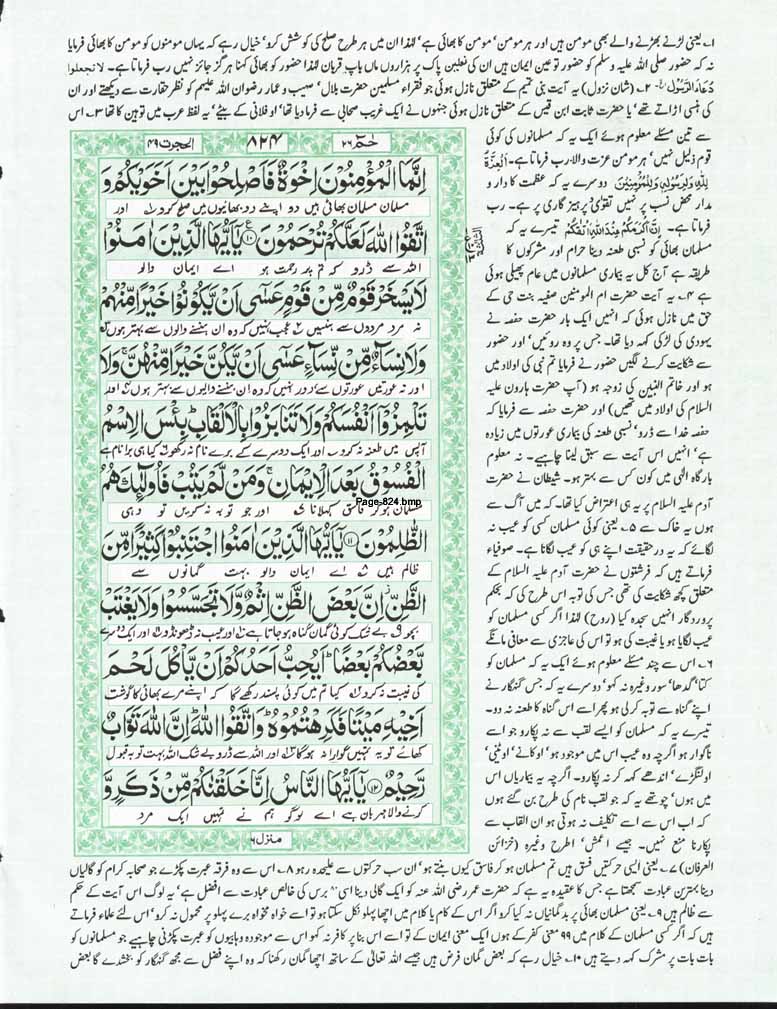 ۱۔ یعنی لڑنے بھڑنے والے بھی مومن ہیں اور ہر مومن، مومن کا بھائی ہے، لہٰذا ان میں ہر طرح صلح کی کوشش کرو، خیال رہے کہ یہاں مومنوں کو مومن کا بھائی فرمایا
نہ کہ حضور صلی اللہ علیہ وسلم کو حضور تو عین ایمان ہیں ان کی نعلین پاک پر ہزاروں ماں باپ قربان لہٰذا حضور کو بھائی کہنا ہرگز جائز نہیں رب فرماتا ہے۔ لاتجعلوا
دُعَاءَ الرَّسُولِ الخ ۲۔ (شان نزول) یہ آیت بنی تمیم کے متعلق نازل ہوئی جو فقراء مسلمین حضرت بلال، صہیب و عمار رضوان اللہ علیہم کو نظر حقارت سے دیکھتے اور ان
کی ہنسی اڑاتے تھے، یا حضرت ثابت ابن قیس کے متعلق نازل ہوئی جنہوں نے ایک غریب صحابی سے فرمادیا تھا، او فلانی کے بیٹے، یہ لفظ عرب میں توہین کا تھا ۳۔ اس
سے تین مسئلے معلوم ہوئے ایک یہ کہ مسلمانوں کی کوئی
قوم ذلیل نہیں، ہر مومن عزت والا رب فرماتا ہے۔ اَلْعِزَّةُ
لِلّٰہِ وَلِرَسُوْلِہٖ وَلِلْمُؤْمِنِیْنَ دوسرے یہ کہ عظمت کا دار و
مدار محض نسب پر نہیں تقویٰ پرہیزگاری پر ہے۔ رب
فرماتا ہے۔ اِنَّ اَکْرَمَکُمْ عِنْدَ اللہِ اَتْقٰکُمْ تیسرے یہ کہ
مسلمان بھائی کو نسبی طعنہ دینا حرام اور مشرکوں کا
طریقہ ہے آج کل یہ بیماری مسلمانوں میں عام پھیلی ہوئی
ہے ۴۔ یہ آیت حضرت ام المومنین صفیہ بنت حی کے
حق میں نازل ہوئی کہ انہیں ایک بار حضرت حفصہ نے
یہودی کی لڑکی کہہ دیا تھا۔ جس پر وہ روئیں، اور حضور
سے شکایت کرنے لگیں حضور نے فرمایا تم نبی کی اولاد میں
ہو اور خاتم النبین کی زوجہ ہو (آپ حضرت ہارون علیہ
السلام کی اولاد میں تھیں) اور حضرت حفصہ سے فرمایا کہ
حفصہ خدا سے ڈرو، نسبی طعنہ کی بیماری عورتوں میں زیادہ
ہے، انہیں اس آیت سے سبق لینا چاہیے۔ نہ معلوم
بارگاہ الٰہی میں کون کس سے بہتر ہو۔ شیطان نے حضرت
آدم علیہ السلام پر یہ ہی اعتراض کیا تھا۔ کہ میں آگ سے
ہوں یہ خاک سے ۵۔ یعنی کوئی مسلمان کسی کو عیب نہ
لگائے کہ یہ در حقیقت اپنے ہی کو عیب لگانا ہے۔ صوفیاء
فرماتے ہیں کہ فرشتوں نے حضرت آدم علیہ السلام کے
متعلق کچھ شکایت کی تھی جس کی توبہ اس طرح کی کہ بحکم
پروردگار انہیں سجدہ کیا (روح) لہٰذا اگر کسی مسلمان کو
عیب لگایا ہو یا غیبت کی ہو تو اس کی عاجزی سے معافی مانگے
۶۔ اس سے چند مسئلے معلوم ہوئے ایک یہ کہ مسلمان کو
کتا، گدھا، سور وغیرہ نہ کہو، دوسرے یہ کہ جس گنہگار نے
اپنے گناہ سے توبہ کر لی ہو پھر اسے اس گناہ کا طعنہ نہ دو۔
تیسرے یہ کہ مسلمان کو ایسے لقب سے نہ پکارو جو اسے
ناگوار ہو اگرچہ وہ عیب اس میں موجود ہو، او کانے، او لٹنی،
او لنگڑے، اندھے کہہ کر نہ پکارو۔ اگرچہ یہ بیماریاں اس
میں ہوں، چوتھے یہ کہ جو لقب نام کی طرح بن گئے ہوں
کہ اب اس سے اسے تکلیف نہ ہوتی ہو ان القاب سے
پکارنا منع نہیں۔ جیسے اعمش، اعرج وغیرہ (خزائن
الحجرٰت ۴۹
۸۲۴
حٰمٓ ۲۶
اِنَّمَا الْمُؤْمِنُوْنَ اِخْوَةٌ فَاَصْلِحُوْا بَیْنَ اَخَوَیْکُمْ وَ
مسلمان مسلمان بھائی ہیں تو اپنے دو بھائیوں میں صلح کرو اور
اتَّقُوا اللہَ لَعَلَّکُمْ تُرْحَمُوْنَ ۱۰ یٰۤاَیُّہَا الَّذِیْنَ اٰمَنُوْا
اللہ سے ڈرو کہ تم پر رحمت ہو اے ایمان والو
لَا یَسْخَرْ قَوْمٌ مِّنْ قَوْمٍ عَسٰۤی اَنْ یَّکُوْنُوْا خَیْرًا مِّنْہُمْ
نہ مرد مردوں سے ہنسیں عجب نہیں کہ وہ ان ہنسنے والوں سے بہتر ہوں
وَلَا نِسَآءٌ مِّنْ نِّسَآءٍ عَسٰۤی اَنْ یَّکُنَّ خَیْرًا مِّنْہُنَّ ۚ وَلَا
اور نہ عورتیں عورتوں سے دور نہیں کہ وہ ان ہنسنے والیوں سے بہتر ہوں اور
تَلْمِزُوْۤا اَنْفُسَکُمْ وَلَا تَنَابَزُوْا بِالْاَلْقَابِ ؕ بِئْسَ الِاسْمُ
آپس میں طعنہ نہ کرو اور ایک دوسرے کے برے نام نہ رکھو کیا ہی برا نام ہے
الْفُسُوْقُ بَعْدَ الْاِیْمَانِ ۚ وَمَنْ لَّمْ یَتُبْ فَاُولٰٓئِکَ ہُمُ
Page-824.bmp
مسلمان ہو کر فاسق کہلانا اور جو توبہ نہ کریں تو وہی
الظّٰلِمُوْنَ ۱۱ یٰۤاَیُّہَا الَّذِیْنَ اٰمَنُوا اجْتَنِبُوْا کَثِیْرًا مِّنَ
ظالم ہیں اے ایمان والو بہت گمانوں سے
الظَّنِّ ۫ اِنَّ بَعْضَ الظَّنِّ اِثْمٌ وَّلَا تَجَسَّسُوْا وَلَا یَغْتَبْ
بچو بے شک کوئی گمان گناہ ہو جاتا ہے اور عیب نہ ڈھونڈو اور ایک دوسرے
بَّعْضُکُمْ بَعْضًا ؕ اَیُحِبُّ اَحَدُکُمْ اَنْ یَّاْکُلَ لَحْمَ
کی غیبت نہ کرو کیا تم میں کوئی پسند رکھے گا کہ اپنے مرے بھائی کا گوشت
اَخِیْہِ مَیْتًا فَکَرِہْتُمُوْہُ ؕ وَاتَّقُوا اللہَ ؕ اِنَّ اللہَ تَوَّابٌ
کھائے تو یہ تمہیں گوارا نہ ہوگا اور اللہ سے ڈرو بے شک اللہ بہت توبہ قبول
رَّحِیْمٌ ۱۲ یٰۤاَیُّہَا النَّاسُ اِنَّا خَلَقْنٰکُمْ مِّنْ ذَکَرٍ وَّ
کرنے والا مہربان ہے اے لوگو ہم نے تمہیں ایک مرد
منزل ۶
العرفان) ۷۔ یعنی ایسی حرکتیں فسق ہیں تم مسلمان ہو کر فاسق کیوں بنتے ہو، ان سب حرکتوں سے علیحدہ رہو ۸۔ اس سے وہ فرقہ عبرت پکڑے جو صحابہ کرام کو گالیاں
دینا بہترین عبادت سمجھتا ہے جس کا عقیدہ یہ ہے کہ حضرت عمر رضی اللہ عنہ کو ایک گالی دینا اسی ۸۰ برس کی خالص عبادت سے افضل ہے، یہ لوگ اس آیت کے حکم
سے ظالم ہیں ۹۔ یعنی مسلمان بھائی پر بدگمانیاں نہ کیا کرو اگر اس کے کام یا کلام میں اچھا پہلو نکل سکتا ہو تو اسے خواہ مخواہ برے پہلو پر محمول نہ کرو، اس لئے علماء فرماتے
ہیں کہ اگر کسی مسلمان کے کلام میں ۹۹ معنی کفر کے ہوں ایک معنی ایمان کے تو اسے اس بنا پر کافر نہ کہو اس سے موجودہ وہابیوں کو عبرت پکڑنی چاہیے جو مسلمانوں کو
بات بات پر مشرک کہہ دیتے ہیں ۱۰۔ خیال رہے کہ بعض گمان فرض ہیں جیسے اللہ تعالیٰ کے ساتھ اچھا گمان رکھنا کہ وہ اپنے فضل سے مجھ گنہگار کو بخشدے گا بعض